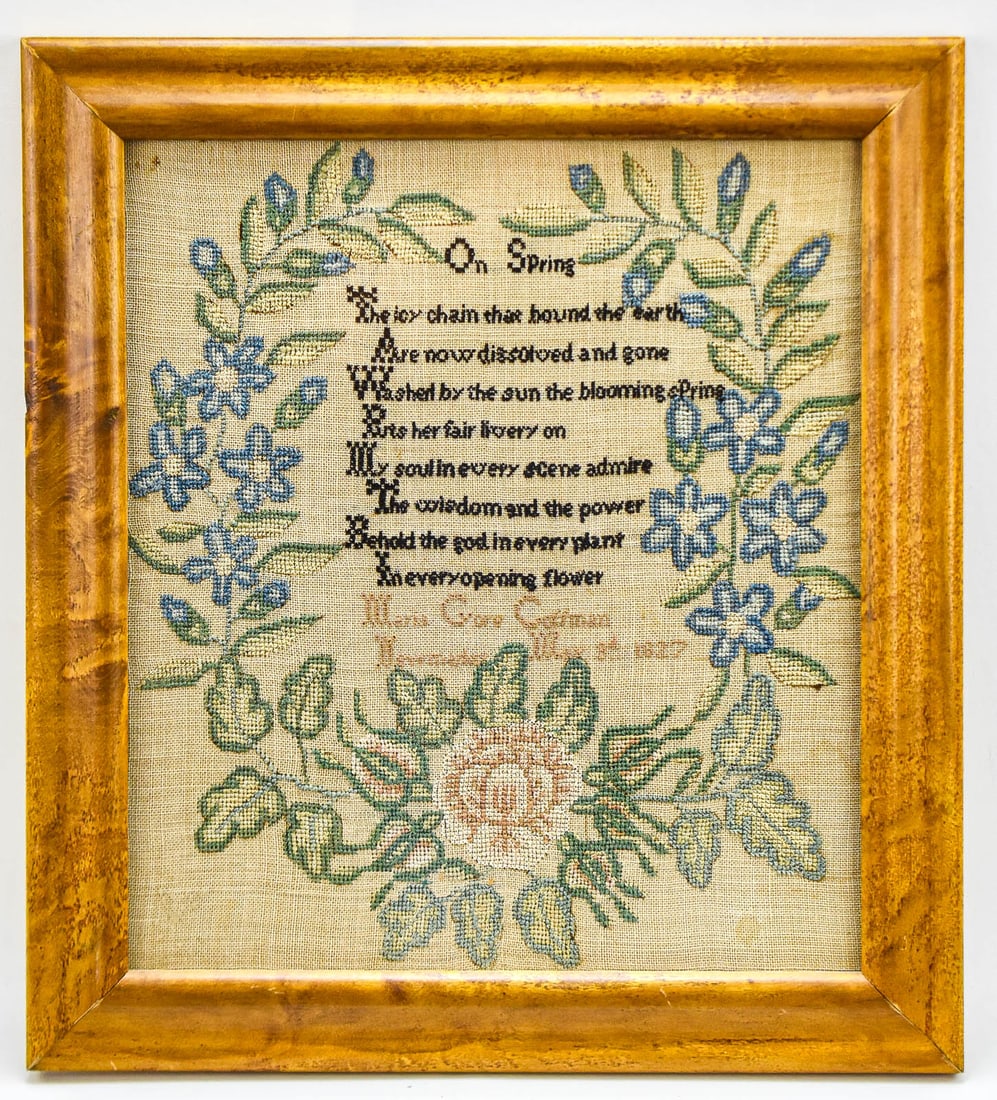 On Spring
The icy chain that bound the earth
Are now dissolved and gone
Washed by the sun the blooming spring
Puts her fair livery on
My soul in every scene admire
The wisdom and the power
Behold the god in every plant
In every opening flower
Maria Coffman
May 1837